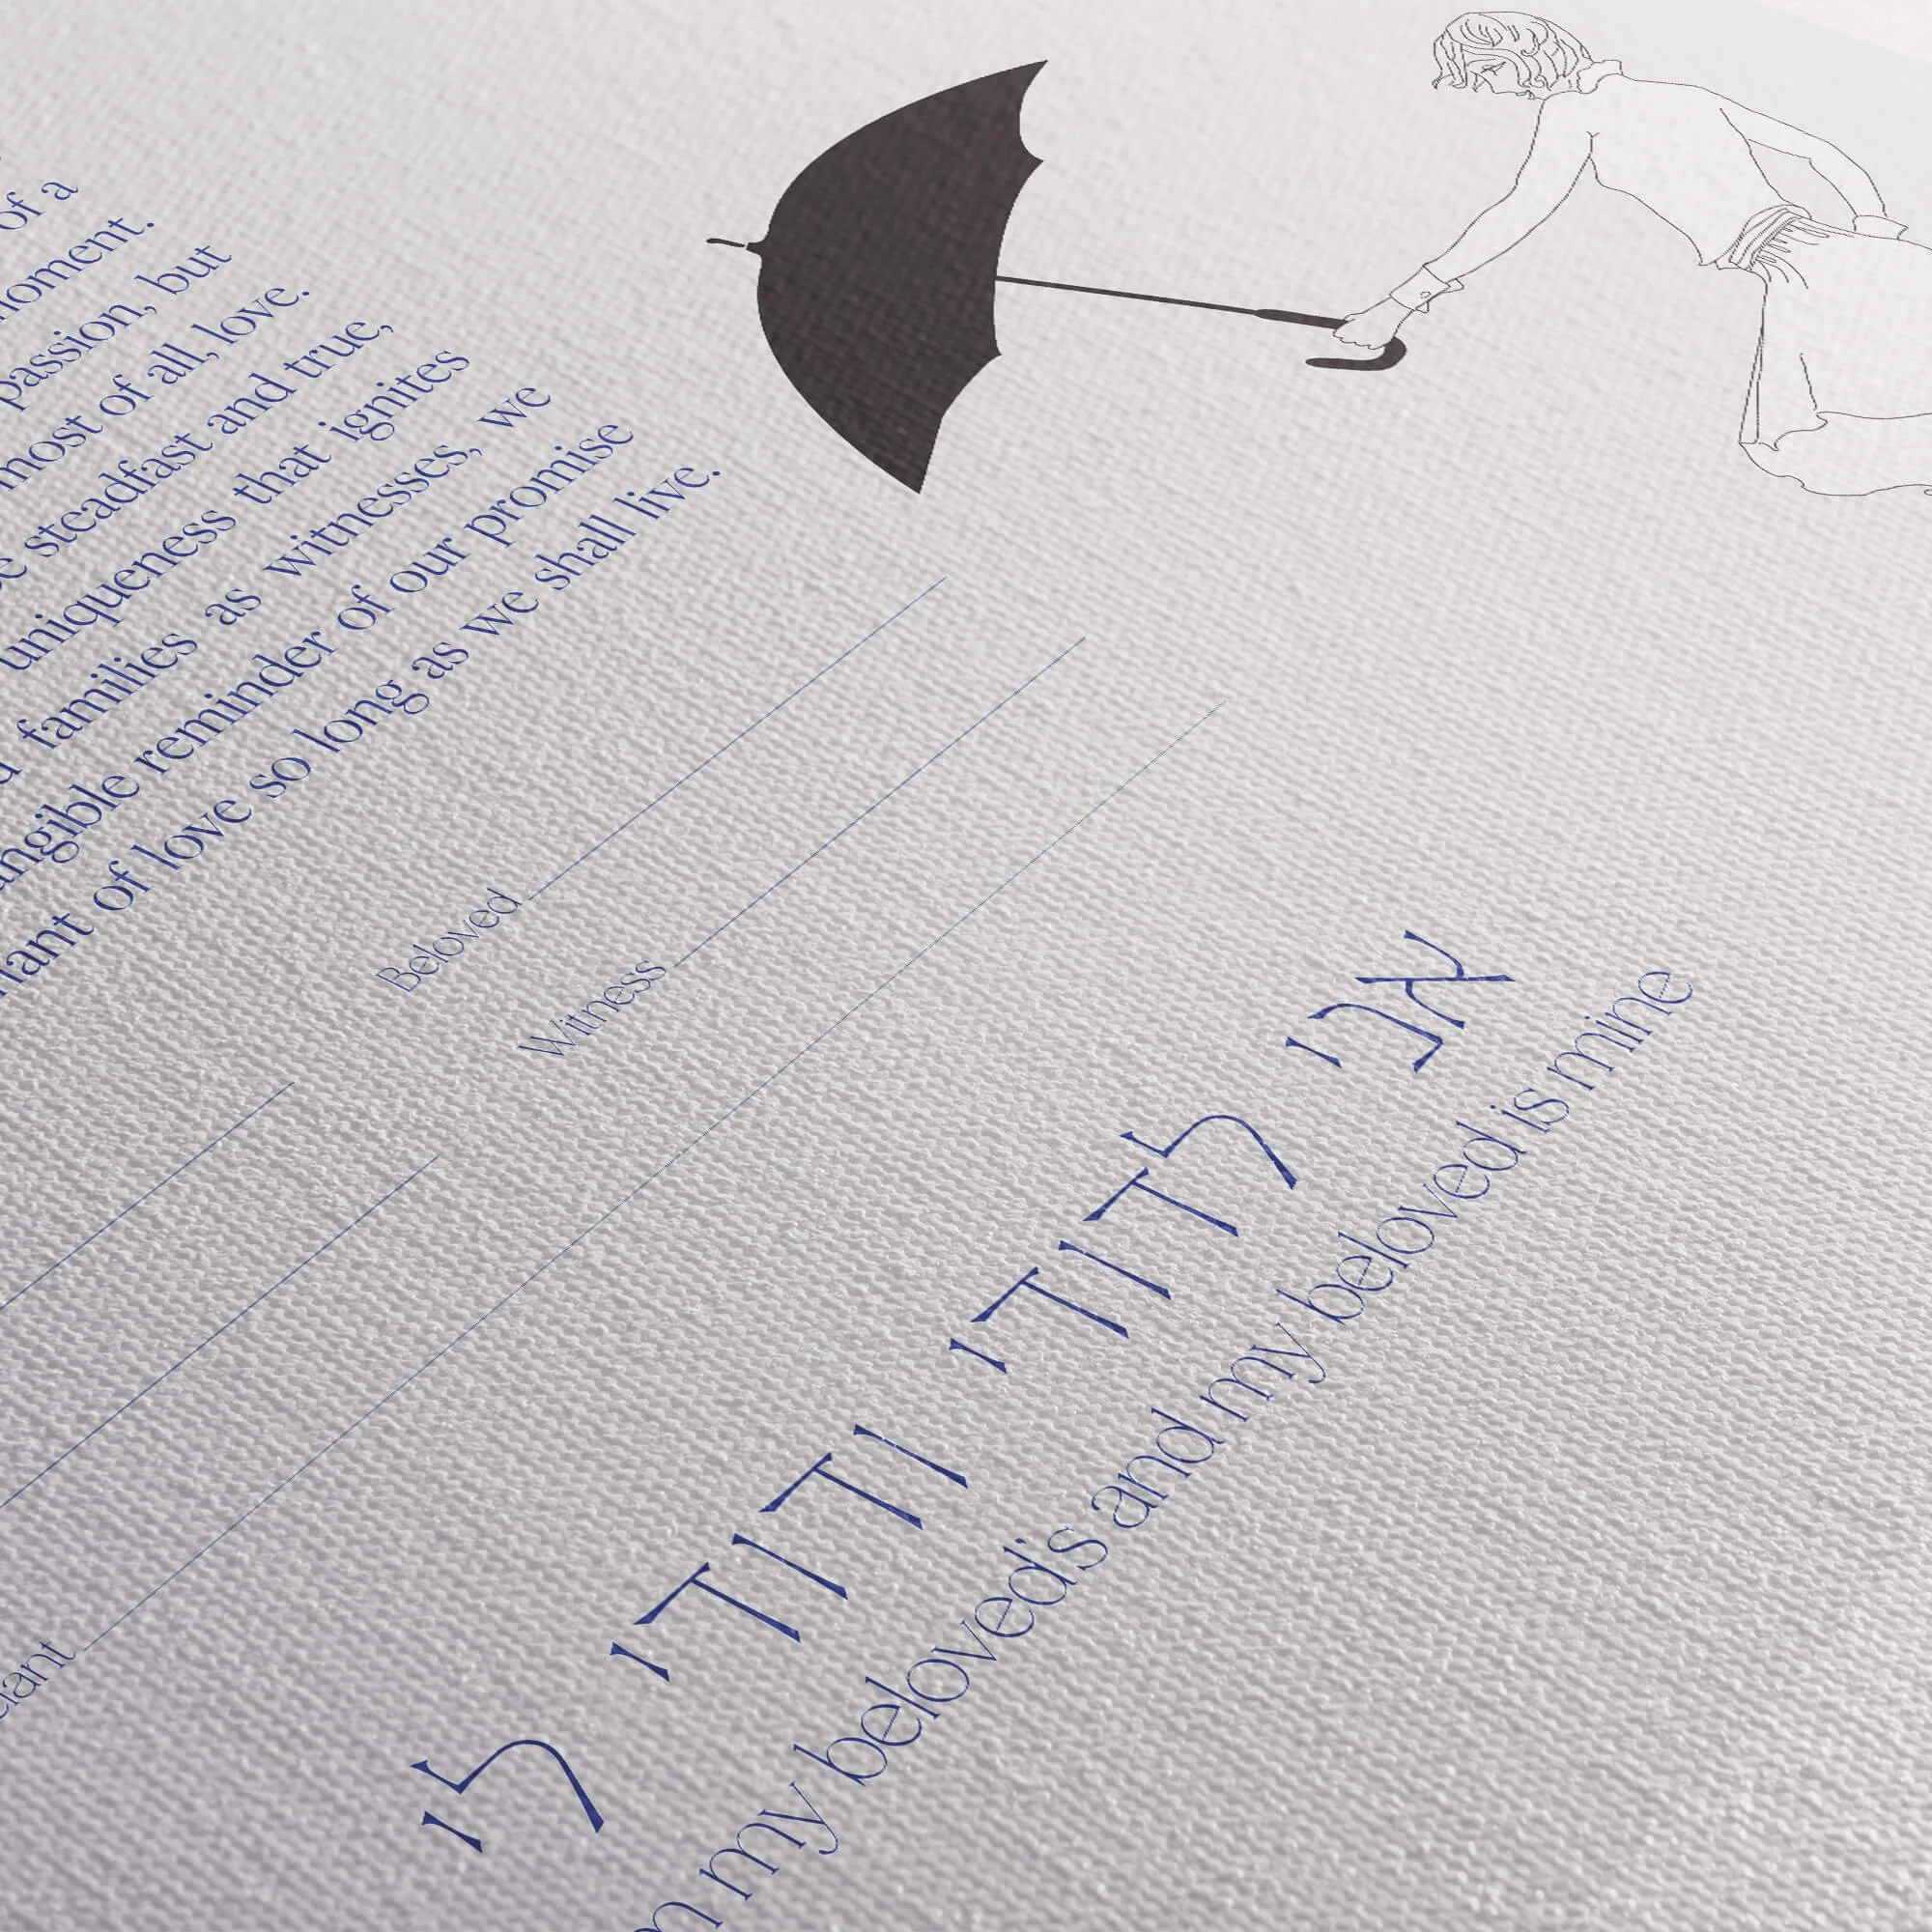 of a
moment.
passion, but
most of all, love.
steadfast and true,
uniqueness that ignites
families as witnesses, we
angible reminder of our promise
nant of love so long as we shall live.
Beloved
Witness
ciant
אני לדודי ודודי לי
my beloved's and my beloved is mine